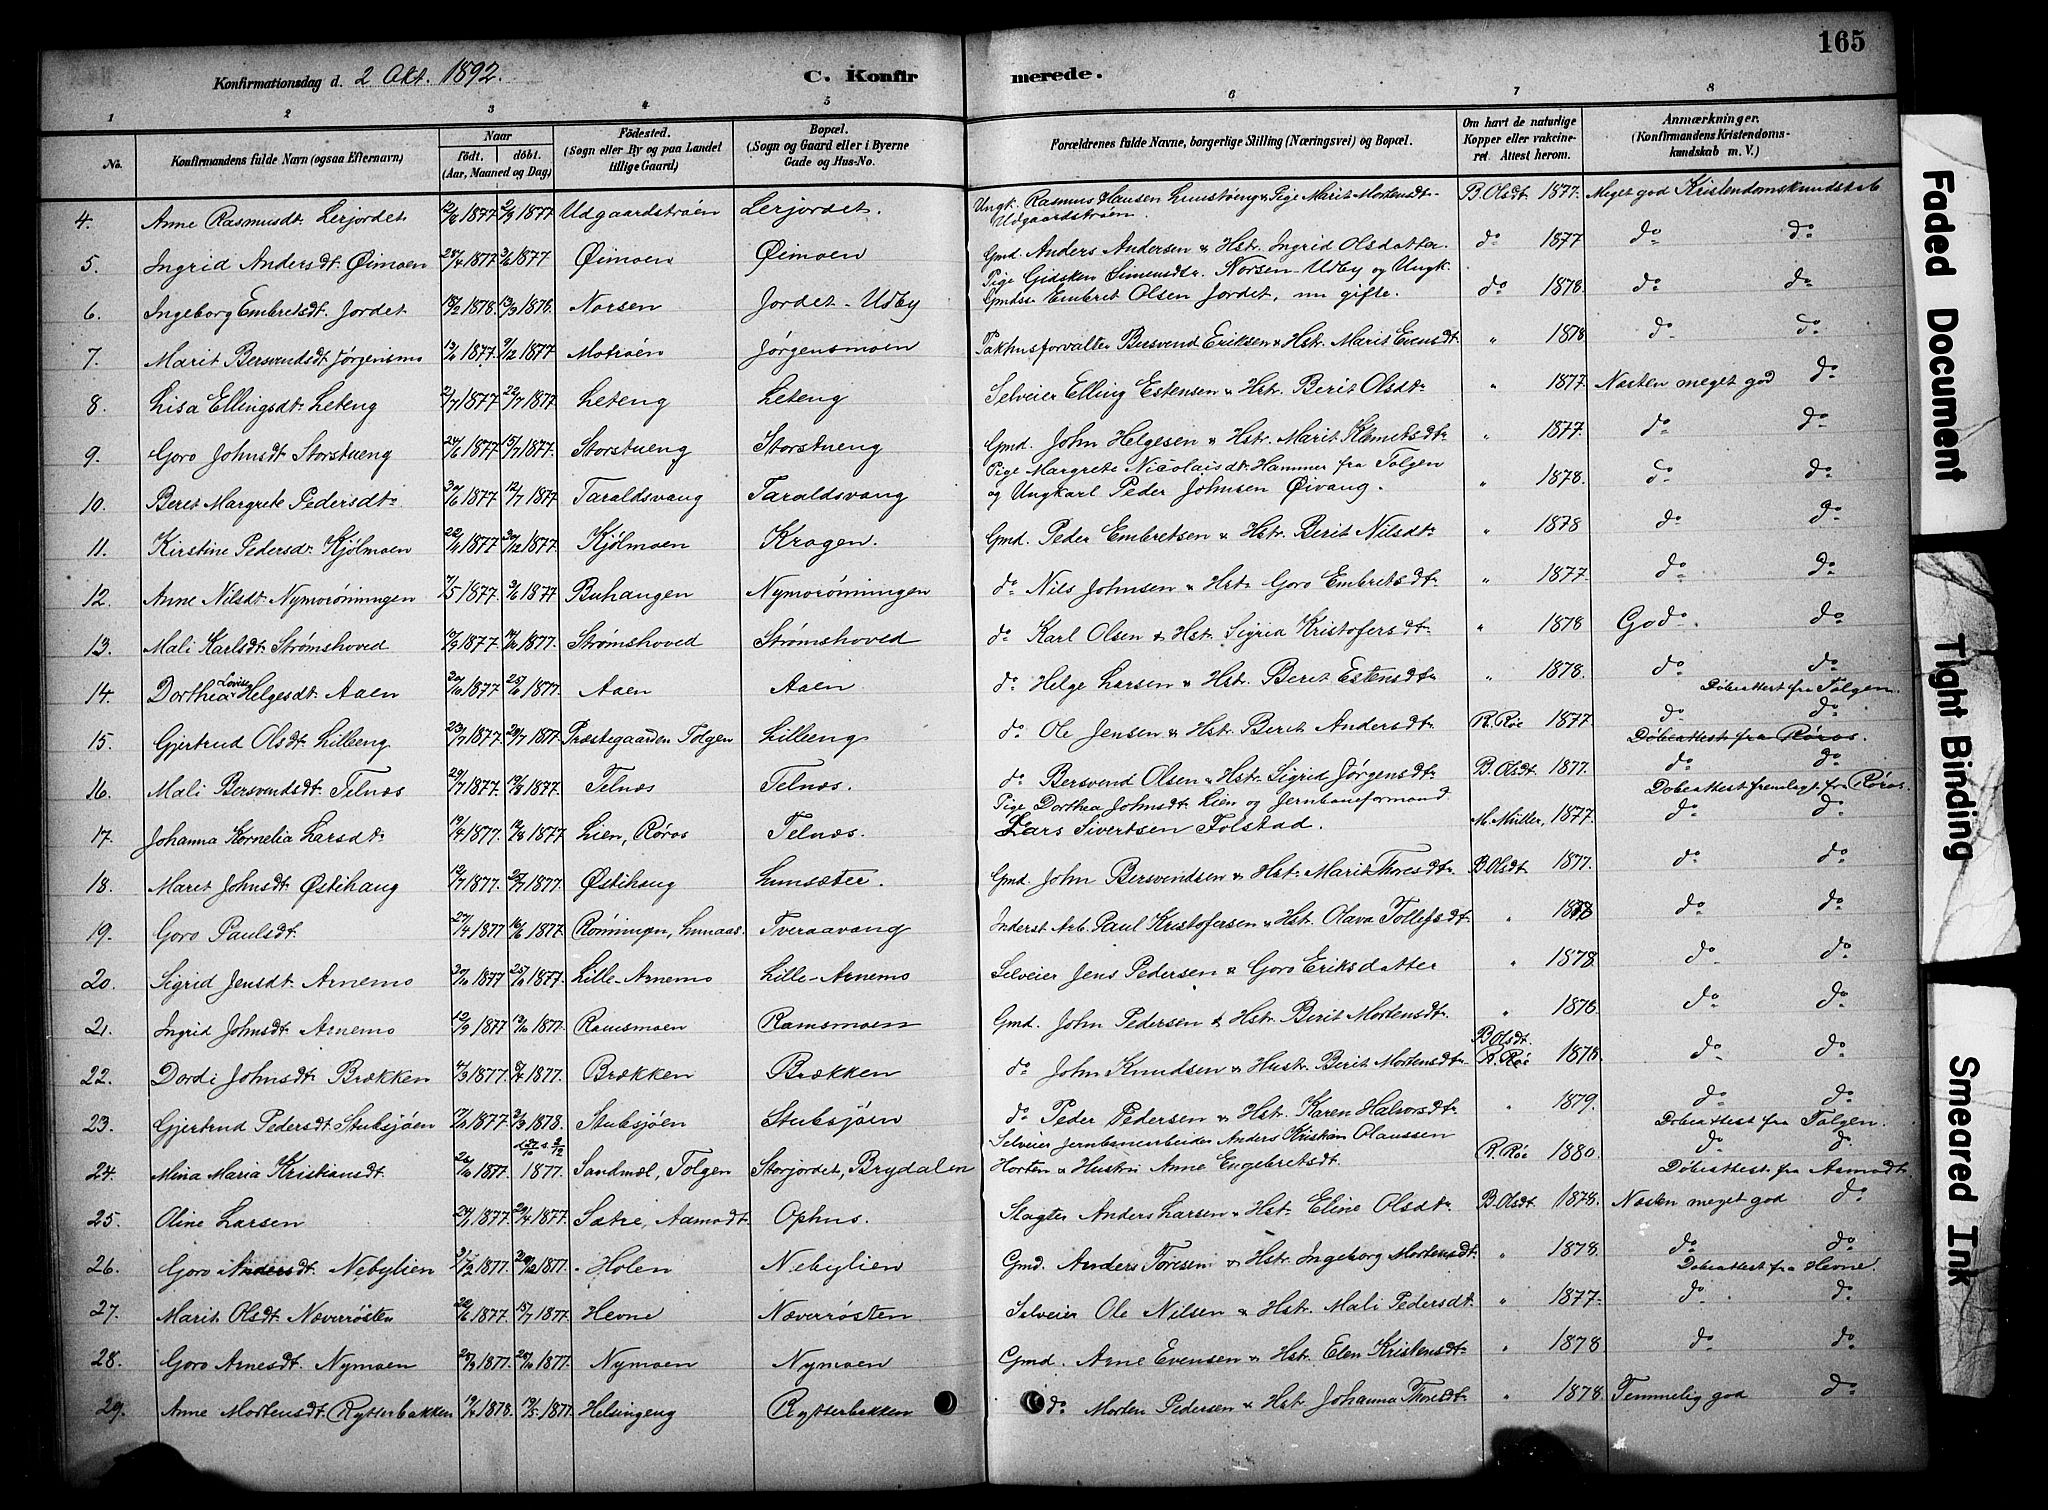 165
Konfirmationsdag d. 2 Okt. 1892.
C. Konfirmerede.
1 2 3 4 5 6 7 8
No. Konfirmandens fulde Navn (ogsaa Efternavn) Naar födt. döbt. (Aar, Maaned og Dag) Födested. (Sogn eller By og paa Landet tillige Gaard) Bopæl. (Sogn og Gaard eller i Byerne Gade og Hus-No. Forældrenes fulde Navne, borgerlige Stilling (Næringsvei) og Bopæl. Om havt de naturlige Kopper eller vakcineret. Attest herom. Anmærkninger. (Konfirmandens Kristendomskundskab m. V.)
4. Anne Rasmusdt. Lerjordet 1877 1877 Udgaardstrøen Lerjordet. Ungk. Rasmus Hansen & Pige Marit Mortensdt. Udgaardstrøen. B. Olsdt 1877. Meget god Kristendomskundskab
5. Ingrid Andersdt. Øimoen 1877 1877 Øimoen Øimoen Gmd. Anders Andersen & Hstr. Ingrid Olsdatter do 1877 do do
6. Ingeborg Embretsdt. Jordet 1878 1878 Norsen Jordet-Udby Pige Gidsken Simensdtr. Norsen-Udby og Ungk. Gmdss. Embret Olsen Jordet, nu gifte. do 1878. do do
7. Marit Bersvendsdt. Jørgensmo 1877 9/12 1877 Motrøen Jørgensmoen Pakhusforvalter Bersvend Eriksen & Hstr. Marit Evensdt. " 1878 do do
8. Lisa Ellingsdt. Leteng 1877 22/7 1877 Leteng Leteng Selveier Elling Estensen & Hstr. Berit Olsdtr " 1877. Næsten meget god do
9. Goro Johnsdt Storstueng 24/6 1877 15/7 1877. Storstueng Storstueng Gmd. John Helgesen & Hstr. Marit Klemetsdtr " 1877. do do
10. Beret Margrete Pedersdtr. 1877 1877 Taraldsvang Taraldsvang Pige Margrete Nicolaisdt. Hammer fra Tolgen og Ungkarl Peder Johnsen Øivang. " 1878. do do
11. Kirstine Pedersdt. Kjølmoen 1877 1877. Kjølmoen Kragen. Gmd. Peder Embretsen & Hstr. Berit Nilsdtr " 1878 do do
12. Anne Nilsdt. Nymorønningen 7/5 1877. 3/6 1877 Buhaugen Nymorønningen do Nils Johnsen & Hstr. Goro Embretsdtr " 1877. do do
13. Mali Karlsdt. Strømshoved 1877 1877. Strømshoved Strømshoved do Karl Olsen & Hstr. Sigrid Kristofersdtr. " 1878 God. do
14. Dorthea Lovise Helgesdt. Aaen 1877 1877. Aaen Aaen do Helge Larsen & Hstr. Beret Estensdtr " 1878. do do
15. Gjertrud Olsdt. Lilleng 1877. 1877. Præstegaarden Tolgen Lilleng do Ole Jensen & Hstr. Beret Andersdtr R. Røe 1877 Døbeattest fra Tolgen. do do
16. Mali Bersvendsdt. Telnæs 29/7 1877. 1877. Telnæs Telnæs. do Bersvend Olsen & Hstr. Sigrid Jørgensdtr B. Olsdt 1877. Døbeattest fra Røros. do do
17. Johanna Kornelia Larsdtr 1877. 1877 Lien, Røros Telnæs. Pige Dorthea Johnsdt. Lien og Jernbaneformand Lars Sivertsen Folstad. M. Müller, 1877. Døbeattest fremlagt fra Røros. do do
18. Maret Johnsdt Østihaug 12/7 1877. 1877. Østihaug Lunsæter. Gmd. John Bersvendsen & Hstr. Marit Thoresdtr B. Olsdt 1877. do do
19. Goro Paulsdt. 1877 1877. Rønningen, Lunaas. Tveraavang Inderst Arb. Paul Kristofersen & Hstr. Olava Tollefsdt. " 1878 do do
20. Sigrid Jensdt. Arnemo 1877 1877. Lille-Arnemo Lille-Arnemo Selveier Jens Pedersen & Goro Eriksdatter " 1878. do do
21. Ingrid Johnsdt. Arnemo 1877 1877. Ramsmoen Ramsmoen Gmd. John Pedersen & Hstr. Berit Mortensdtr. " 1878 do do
22. Dordi Johnsdt. Brækken 1877. 1877. Brækken Brækken do John Knudsen & Hustr. Berit Mortensdtr B Olsdt. R. Røe 1878 do do
23. Gjertrud Pedersdt. Stubsjøen 1877. 1878. Stubsjøen Stubsjøen do Peder Pedersen & Hstr. Karen Halvorsdtr " 1879. do do
24. Mina Maria Kristiansdt. 1877. 1877. Sandmæl, Tolgen Storjordet, Brydalen Selveier Jernbanearbeider Anders Kristian Olaussen Horten & Hustru Anne Engebretsdt. R. Røe 1880. Døbeattest fra Tolgen. do do
25. Oline Larsen 1877. 1877. Sætre, Aamodt. Ophus. Slagter Anders Larsen & Hstr. Eline Olsdtr B. Olsdt 1878. Døbeattest fra Aamodt Næsten meget god do
26. Goro Andersdt. Nebylien 1877. 1877. Holen Nebylien Gmd. Anders Toresen & Hstr. Ingeborg Mortensdt. " 1878. do do
27. Marit Olsdt Næverrøsten 1877. 15/7 1877. Hevne Næverrøsten Selveier Ole Nilsen & Hstr. Mali Pedersdt. " 1877. Døbeattest fra Hevne. do do
28. Goro Arnesdt. Nymoen 1877. 1877. Nymoen Nymoen Gmd. Arne Evensen & Hstr. Elen Kristensdtr " 1878 do do
29. Anne Mortensdt. Rytterbakken 1878. 1877. Helsingeng Rytterbakken do Morten Pedersen & Hst. Johanna Thoresdtr " 1878. Temmelig god do
Faded Document
Tight Binding
Smeared Ink